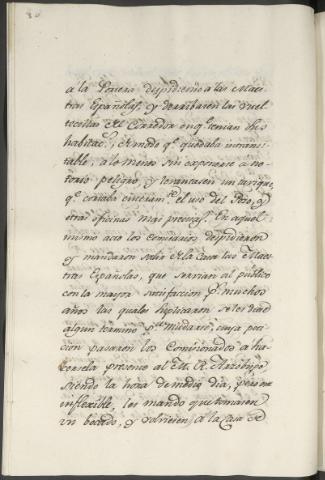 à la Ponera despidieron à las Maes-
tras Españolas, y derribaron las
tecillas del Corredor en qe. tenian sus
habitac.s, de modo qe. quedaba intransi-
table, a lo menos sin exponerse à no-
torio peligro, y levantaron un tavique,
qe. cortaba enteram.te el uso del Pozo, y
otras oficinas mas precisas. En aquel
mismo acto los Comisarios despidieron
y mandaron salir de la Casa las Maes-
tras Españolas, que servian al publico
con la mayor satisfaccion pr. muchos
años las quales suplicaron se les diese
algun termino pa. mudarse, cuya peti-
cion pasaron los Comisionados à ha-
cersela presente al M. R. Arzobispo
siendo la hora de medio dia, pero
inflexible, les mando que tomasen
un bocado, y volviesen à la Casa de